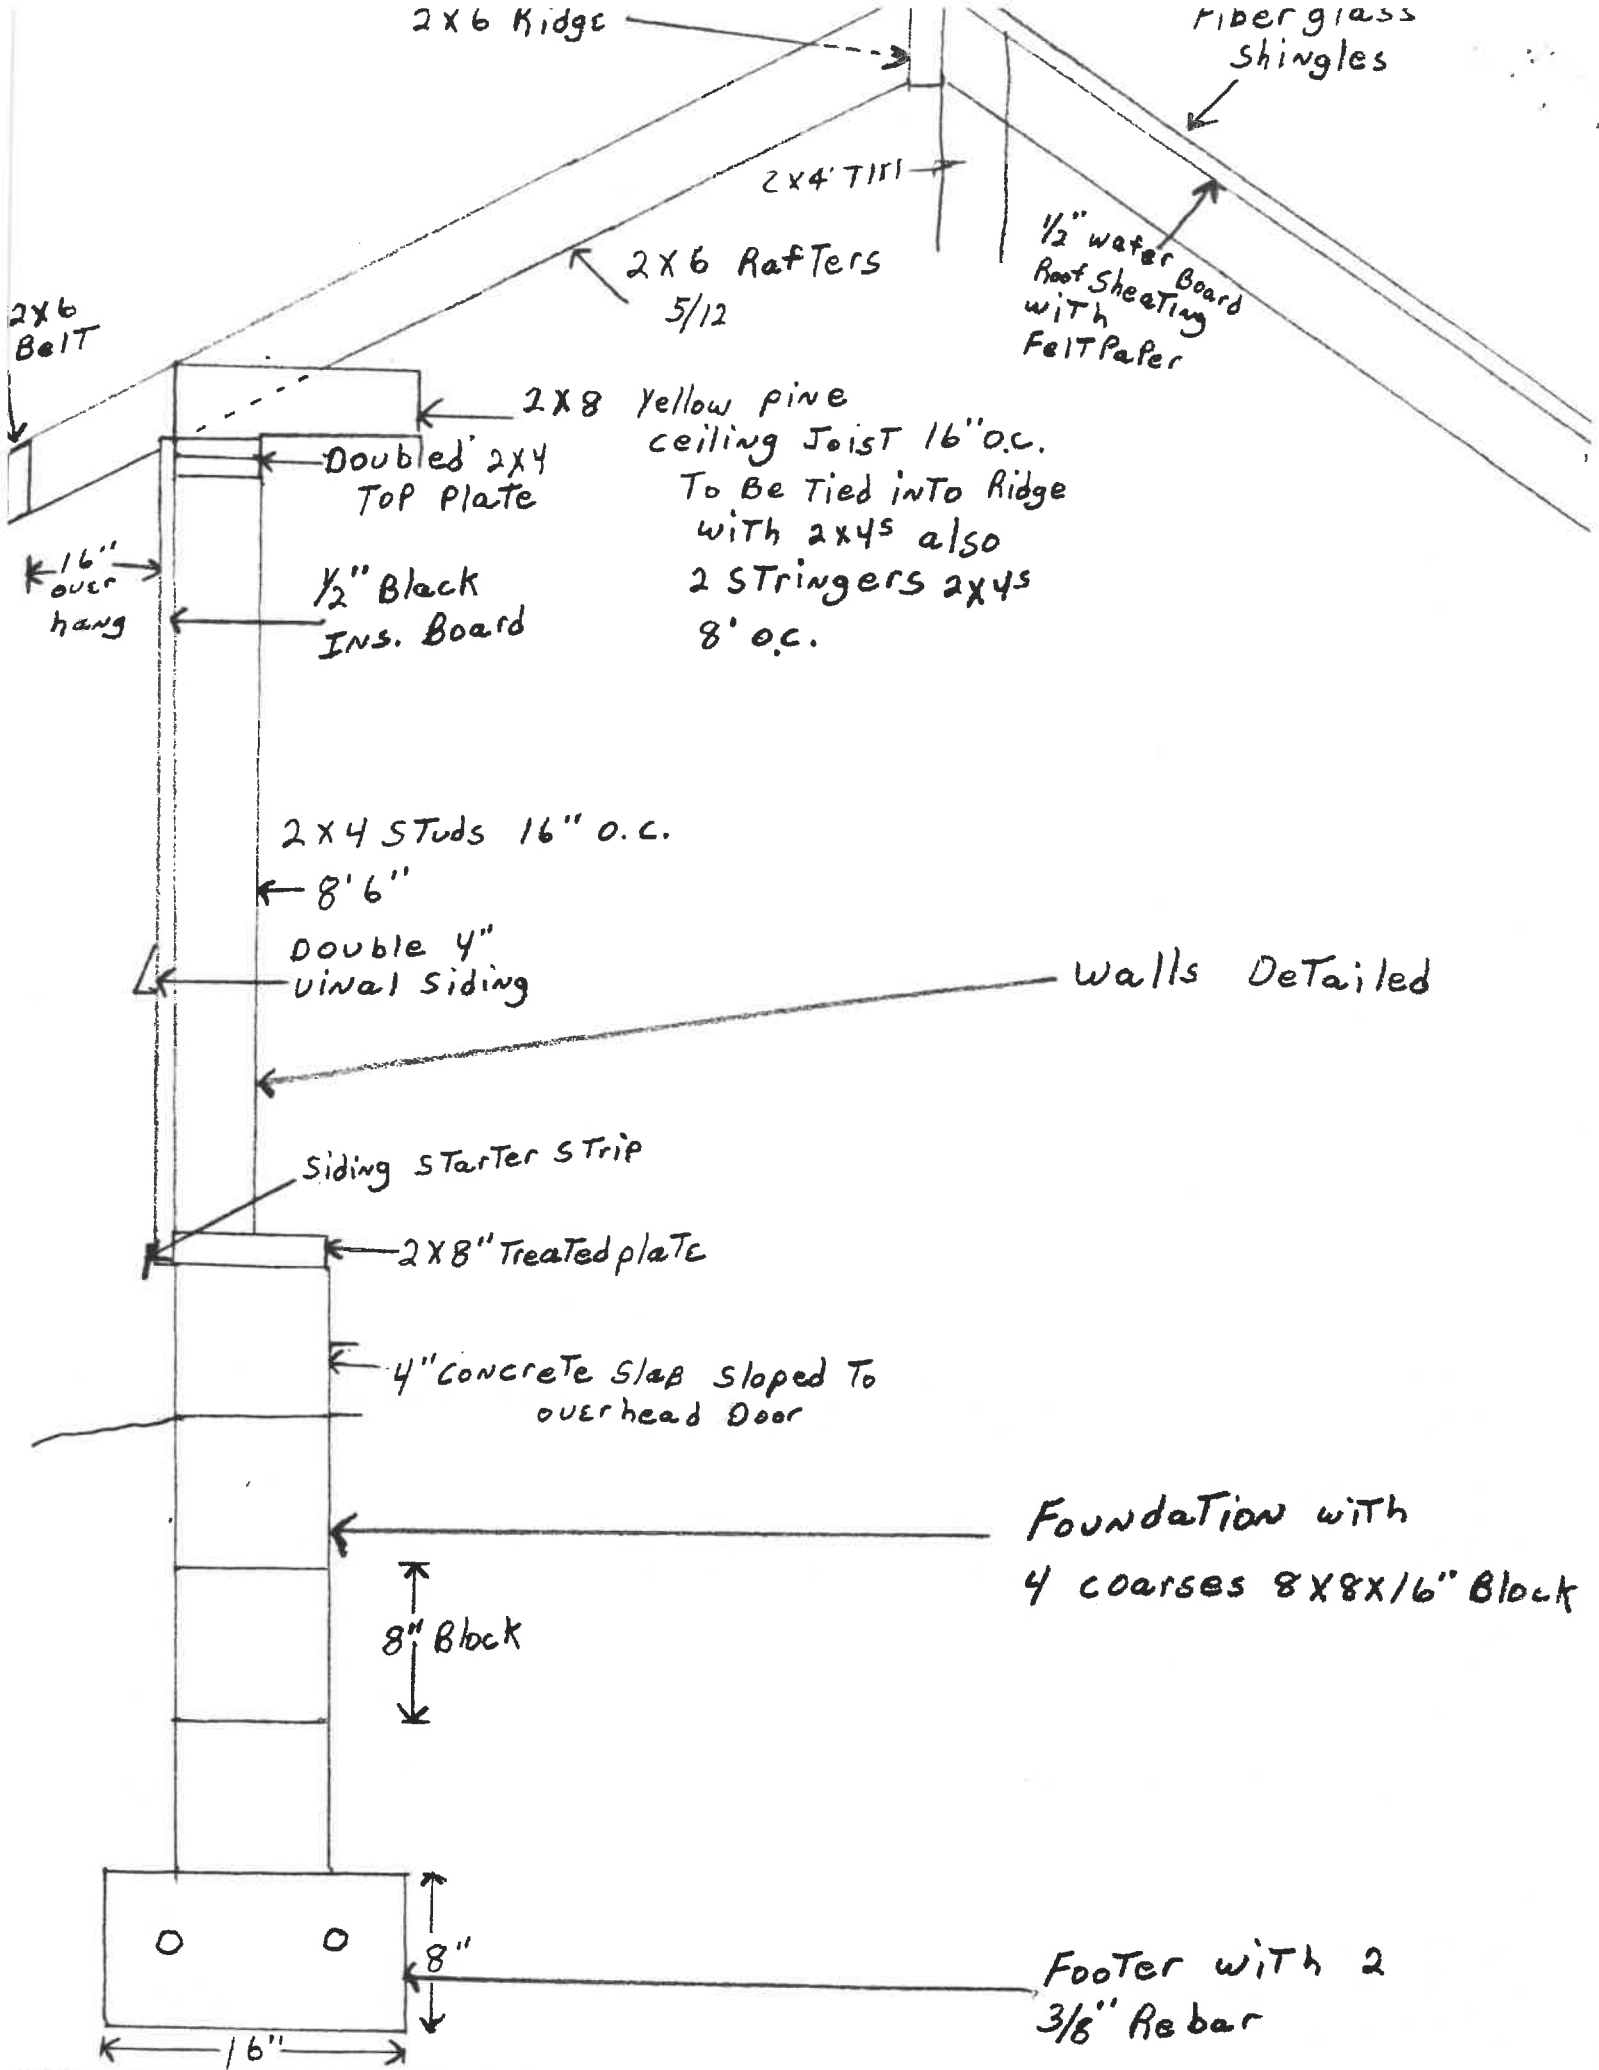 2x6 Ridge
Fiberglass
Shingles
2x4 
2x6 Rafters
5/12
1/2" wafer Board
Roof Sheating
with
Felt Paper
2x6
Belt
2x8 Yellow pine
ceiling Joist 16" o.c.
To Be Tied into Ridge
with 2x4s also
2 Stringers 2x4s
8' o.c.
Doubled 2x4
Top Plate
16"
over
hang
1/2" Black
Ins. Board
2x4 Studs 16" o.c.
8'6"
Double 4"
vinal Siding
Walls Detailed
Siding Starter Strip
2x8" Treated plate
4" Concrete Slab Sloped To
overhead Door
Foundation with
4 coarses 8x8x16" Block
8" Block
8"
Footer with 2
3/8" Rebar
16"